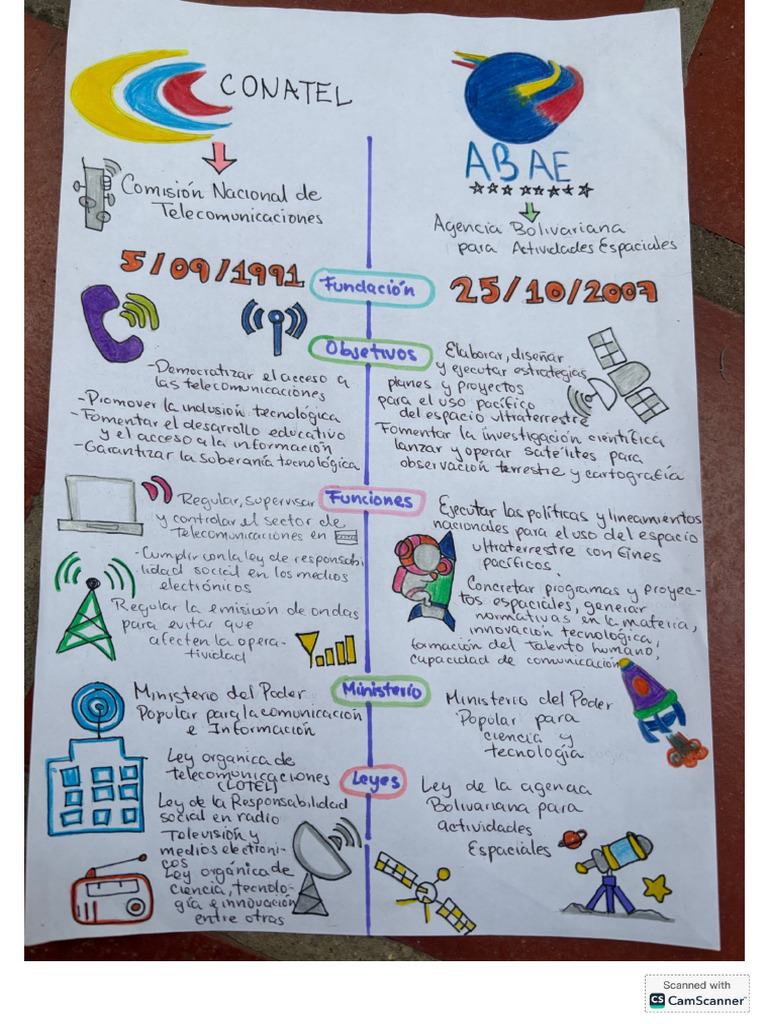 CONATEL
Comisión Nacional de
Telecomunicaciones
ABAE
Agencia Bolivariana
para Actividades Espaciales
Fundación
5/09/1991
25/10/2007
Objetivos
-Democratizar el acceso a
las telecomunicaciones
-Promover la inclusión tecnológica
-Fomentar el desarrollo educativo
y el acceso a la información
-Garantizar la soberanía tecnológica
Elaborar, diseñar
y ejecutar estrategias,
planes y proyectos
para el uso pacífico
del espacio ultraterrestre
Fomentar la investigación científica
lanzar y operar satélites para
observación terrestre y cartografía
Funciones
Regular, supervisar
y controlar el sector de
telecomunicaciones en
-Cumplir con la ley de responsabi
lidad social en los medios
electrónicos
Regular la emisión de ondas
para evitar que
afecten la opera-
tividad
Ejecutar las políticas y lineamientos
nacionales para el uso del espacio
ultraterrestre con fines
pacíficos.
Concretar programas y proyec-
tos espaciales, generar
normativas en la materia,
innovación tecnológica,
formación del talento humano,
capacidad de comunicación
Ministerio
Ministerio del Poder
Popular para la comunicación
e Información
Ministerio del Poder
Popular para
ciencia y
tecnología
Leyes
Ley organica de
telecomunicaciones
(LOTEL)
Ley de la Responsabilidad
social en radio
Televisión y
medios electroni-
cos
Ley orgánica de
ciencia, tecnolo-
gía e innovación
entre otras
Ley de la agencia
Bolivariana para
actividades
Espaciales
Scanned with
CS CamScanner